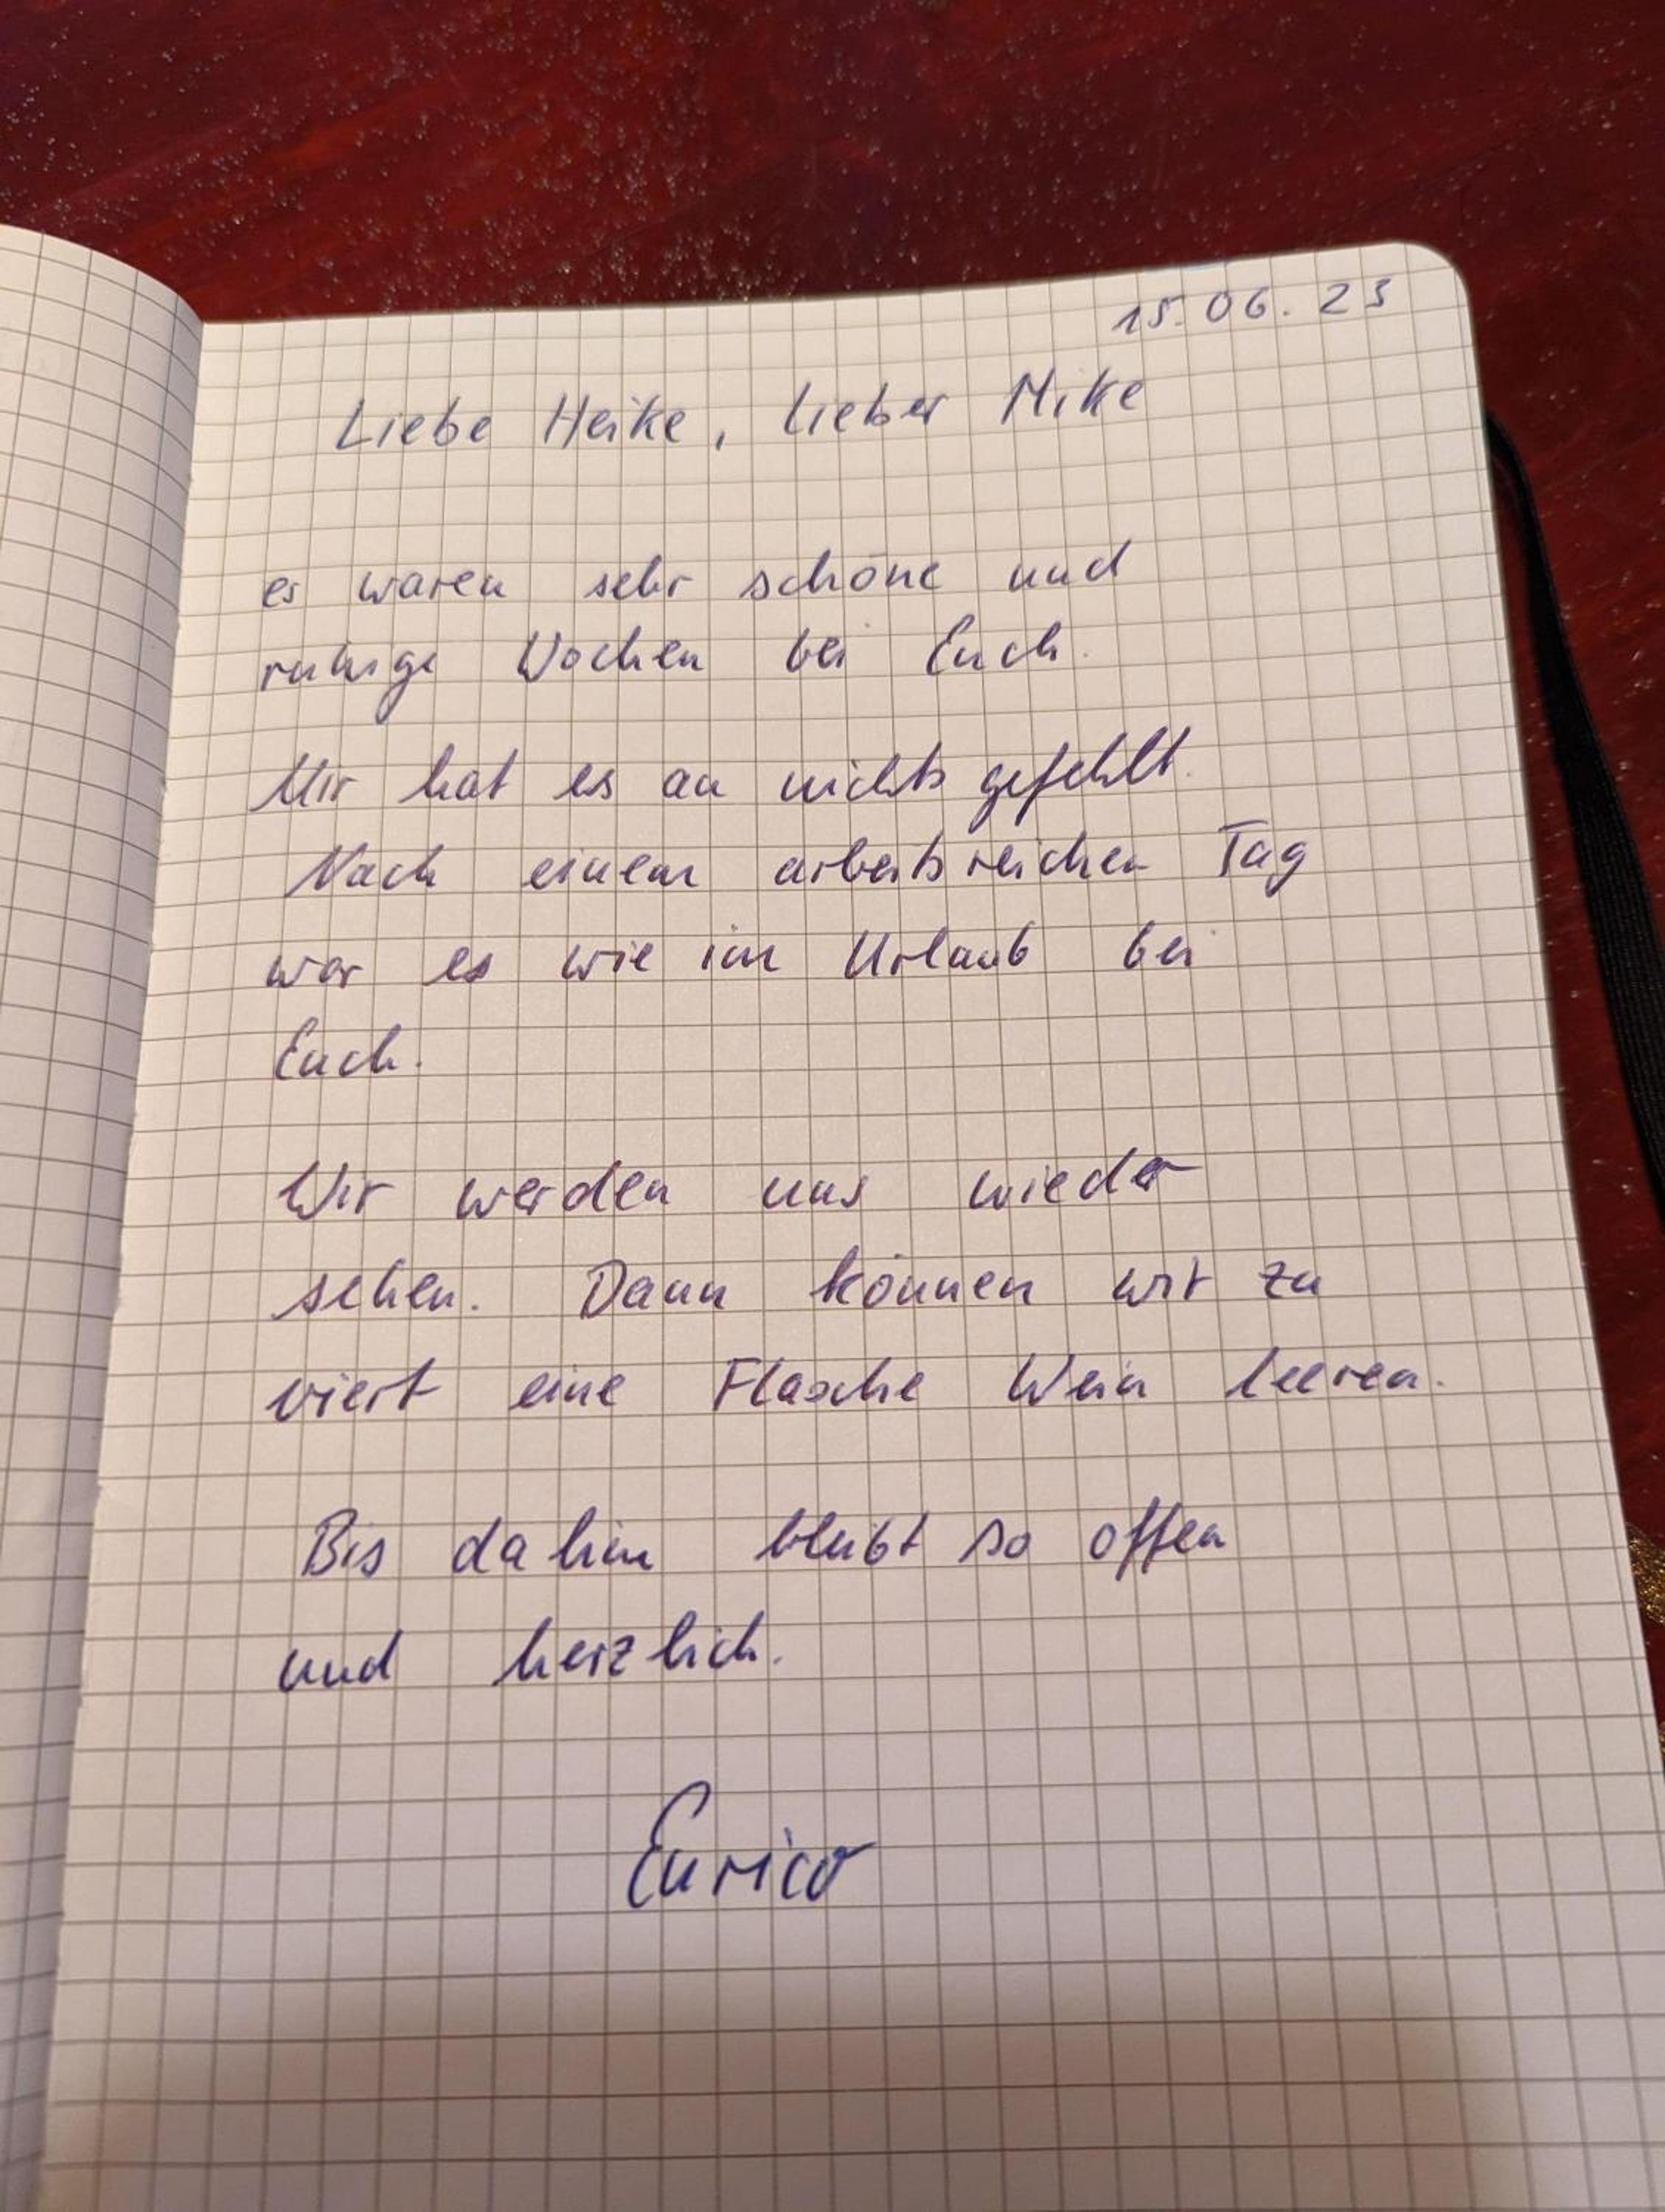 15.06.23
Liebe Heike, lieber Mike
es waren sehr schöne und
ruhige Wochen bei Euch.
Mir hat es an nichts gefehlt.
Nach einem arbeitsreichen Tag
war es wie im Urlaub bei
Euch.
Wir werden uns wieder
sehen. Dann können wir zu
viert eine Flasche Wein leeren.
Bis dahin bleibt so offen
und herzlich.
Enrico